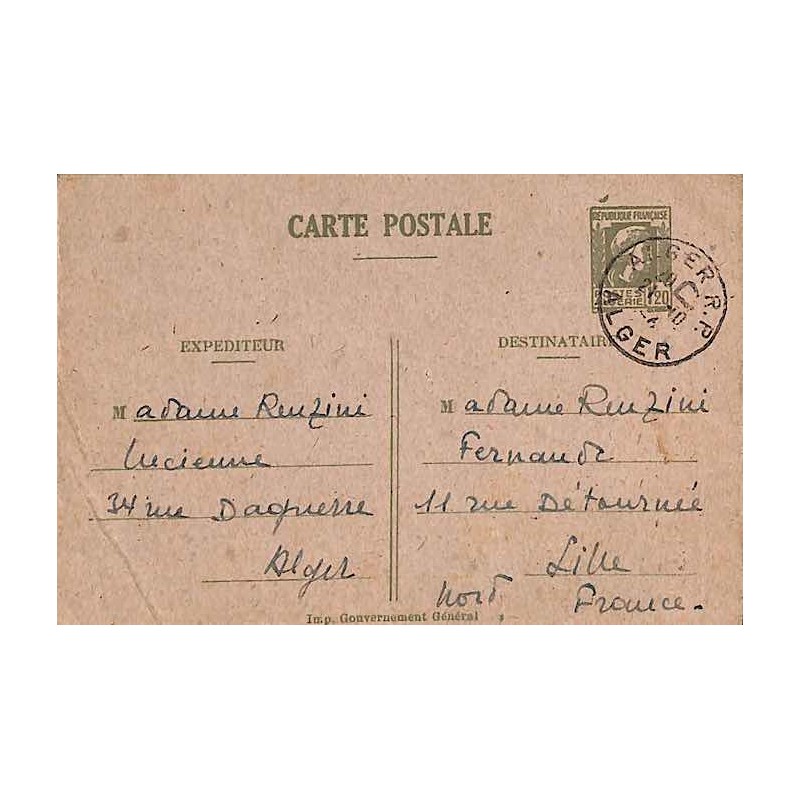 CARTE POSTALE
RÉPUBLIQUE FRANÇAISE
POSTES
ALGÉRIE
1F20
ALGER R.P.
21-10
ALGER
EXPEDITEUR
Madame Renzini
Lucienne
34 rue Daguerre
Alger
DESTINATAIRE
Madame Renzini
Fernande
11 rue Détournée
Lille
Nord France.
Imp. Gouvernement Général